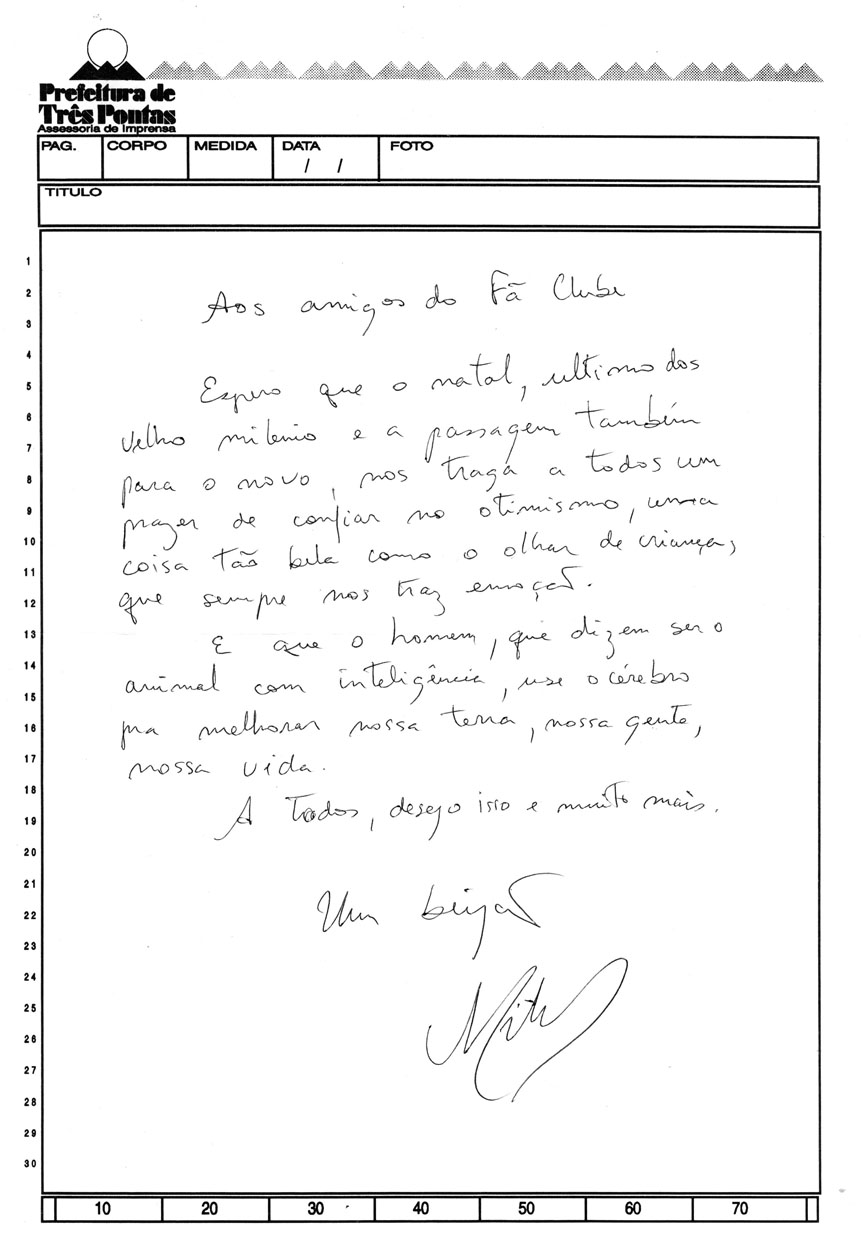 Prefeitura de
Três Pontas
Assessoria de Imprensa
PAG. CORPO MEDIDA DATA FOTO
/ /
TITULO
1
2
3
4
5
6
7
8
9
10
11
12
13
14
15
16
17
18
19
20
21
22
23
24
25
26
27
28
29
30
Aos amigos do Fã Clube
Espero que o natal, ultimo dos
velho milenio e a passagem também
para o novo, nos traga a todos um
prazer de confiar no otimismo, uma
coisa tão bela como o olhar de criança,
que sempre nos traz emoção.
E que o homem, que dizem ser o
animal com inteligência, use o cérebro
pra melhorar nossa terra, nossa gente,
nossa vida.
A todos, desejo isso e muito mais.
Um beijão
10 20 30 40 50 60 70